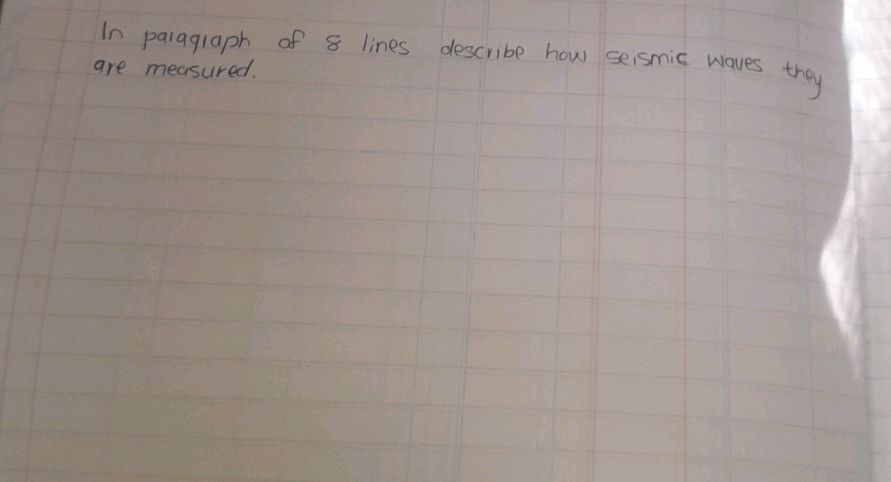 In paragraph of 8 lines describe how seismic waves they
are measured.